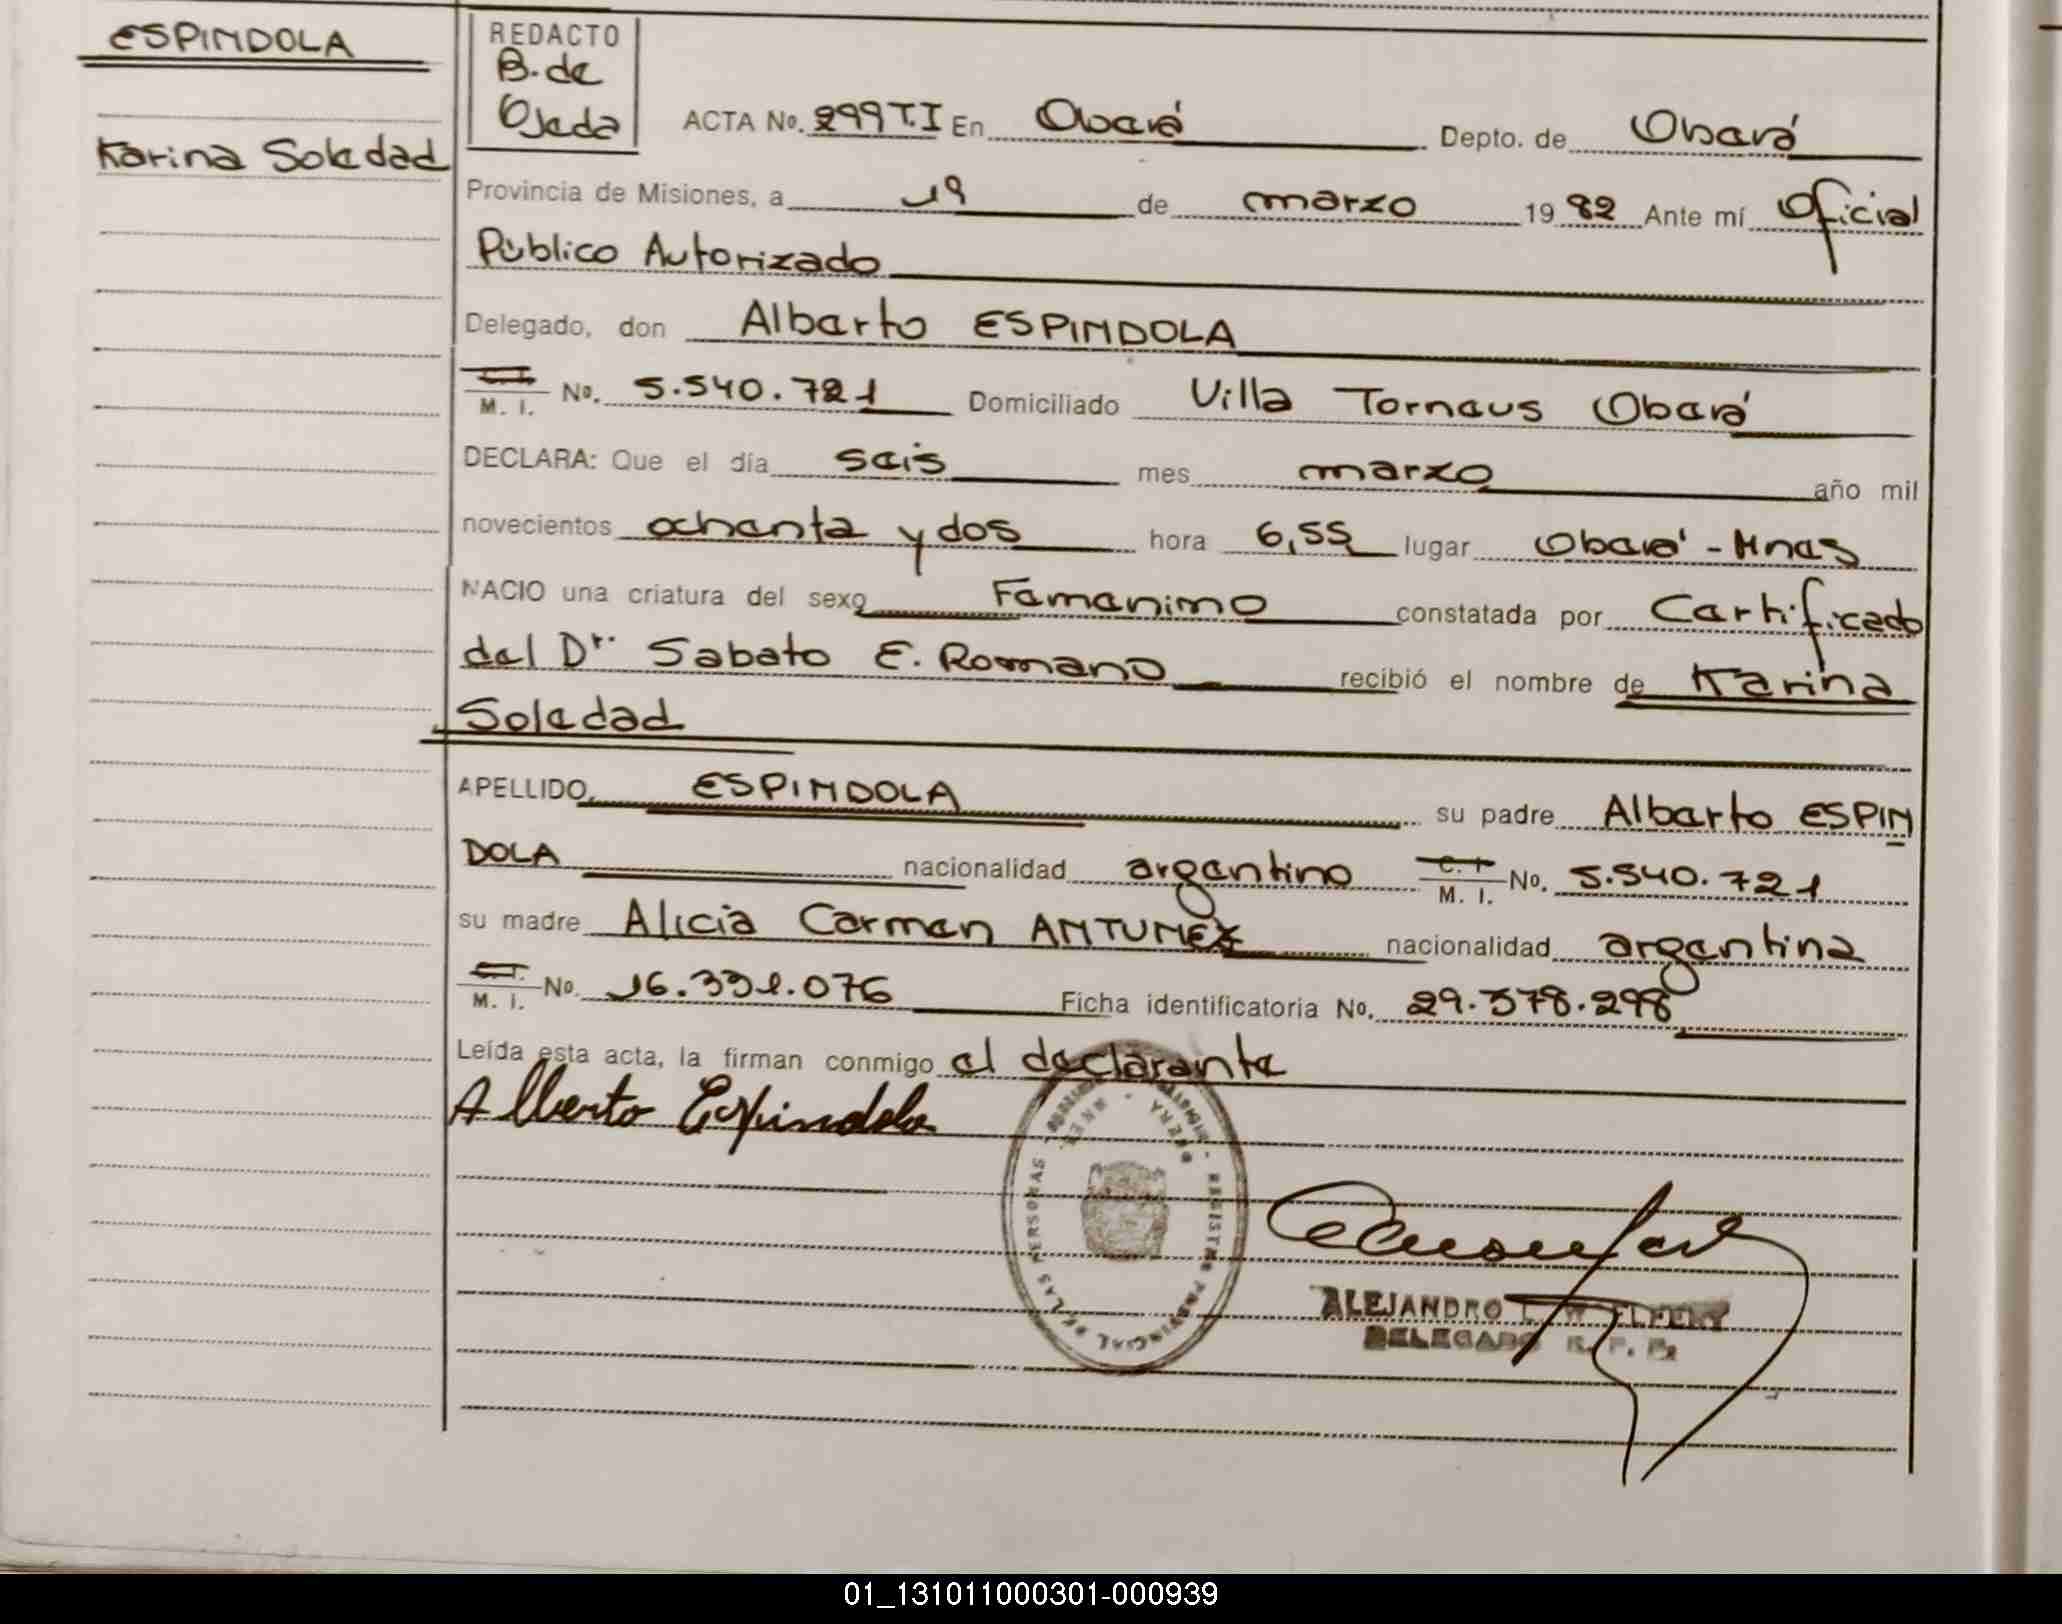 ESPINDOLA
Karina Soledad
REDACTO
B. de
Ojeda
ACTA No. 299 T.I En Oberá Depto. de Oberá
Provincia de Misiones, a 19 de marzo 1982 Ante mí Oficial
Público Autorizado
Delegado, don Alberto ESPINDOLA
C. I.
M. I. No. 5.540.721 Domiciliado Villa Torneus Oberá
DECLARA: Que el día seis mes marzo año mil
novecientos ochenta y dos hora 6,55 lugar Oberá - Mnes
NACIO una criatura del sexo Femenino constatada por Certificado
del Dr. Sabato E. Romano recibió el nombre de Karina
Soledad
APELLIDO, ESPINDOLA su padre Alberto ESPIN
DOLA nacionalidad argentino C. I. M. I. No. 5.540.721
su madre Alicia Carmen ANTUNEZ nacionalidad argentina
C. I. M. I. No. 16.331.076 Ficha identificatoria No. 29.378.298
Leída esta acta, la firman conmigo el declarante
Alberto Espindola
REGISTRO PROVINCIAL DE LAS PERSONAS
ALEJANDRO
DELEGADO R. P. P.
01_131011000301-000939